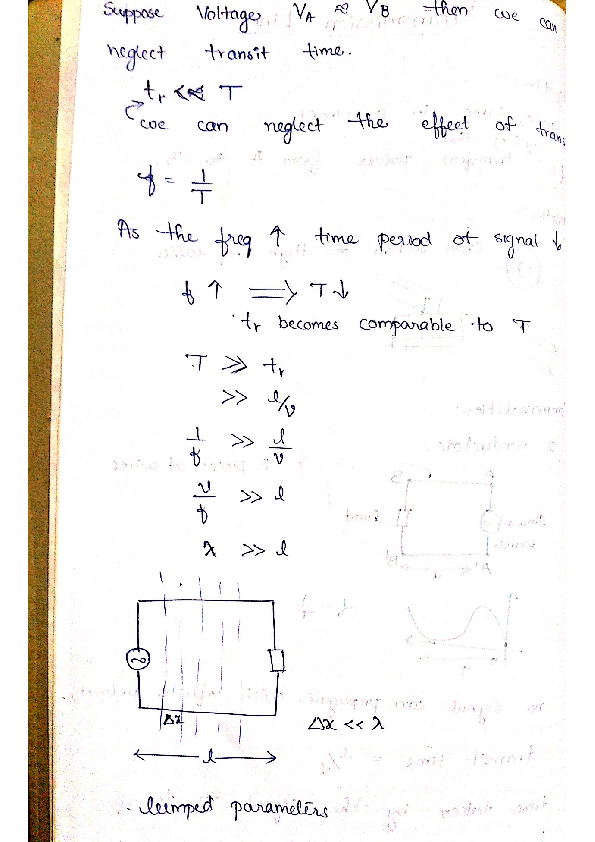 Suppose Voltages VA ≈ VB then we can
neglect transit time.
tr << T
we can neglect the effect of trans
f = 1/T
As the freq ↑ time period of signal ↓
f ↑ ⟹ T↓
tr becomes comparable to T
T >> tr
>> l/v
1/f >> l/v
v/f >> l
λ >> l
Δx
Δx << λ
l
lumped parameters